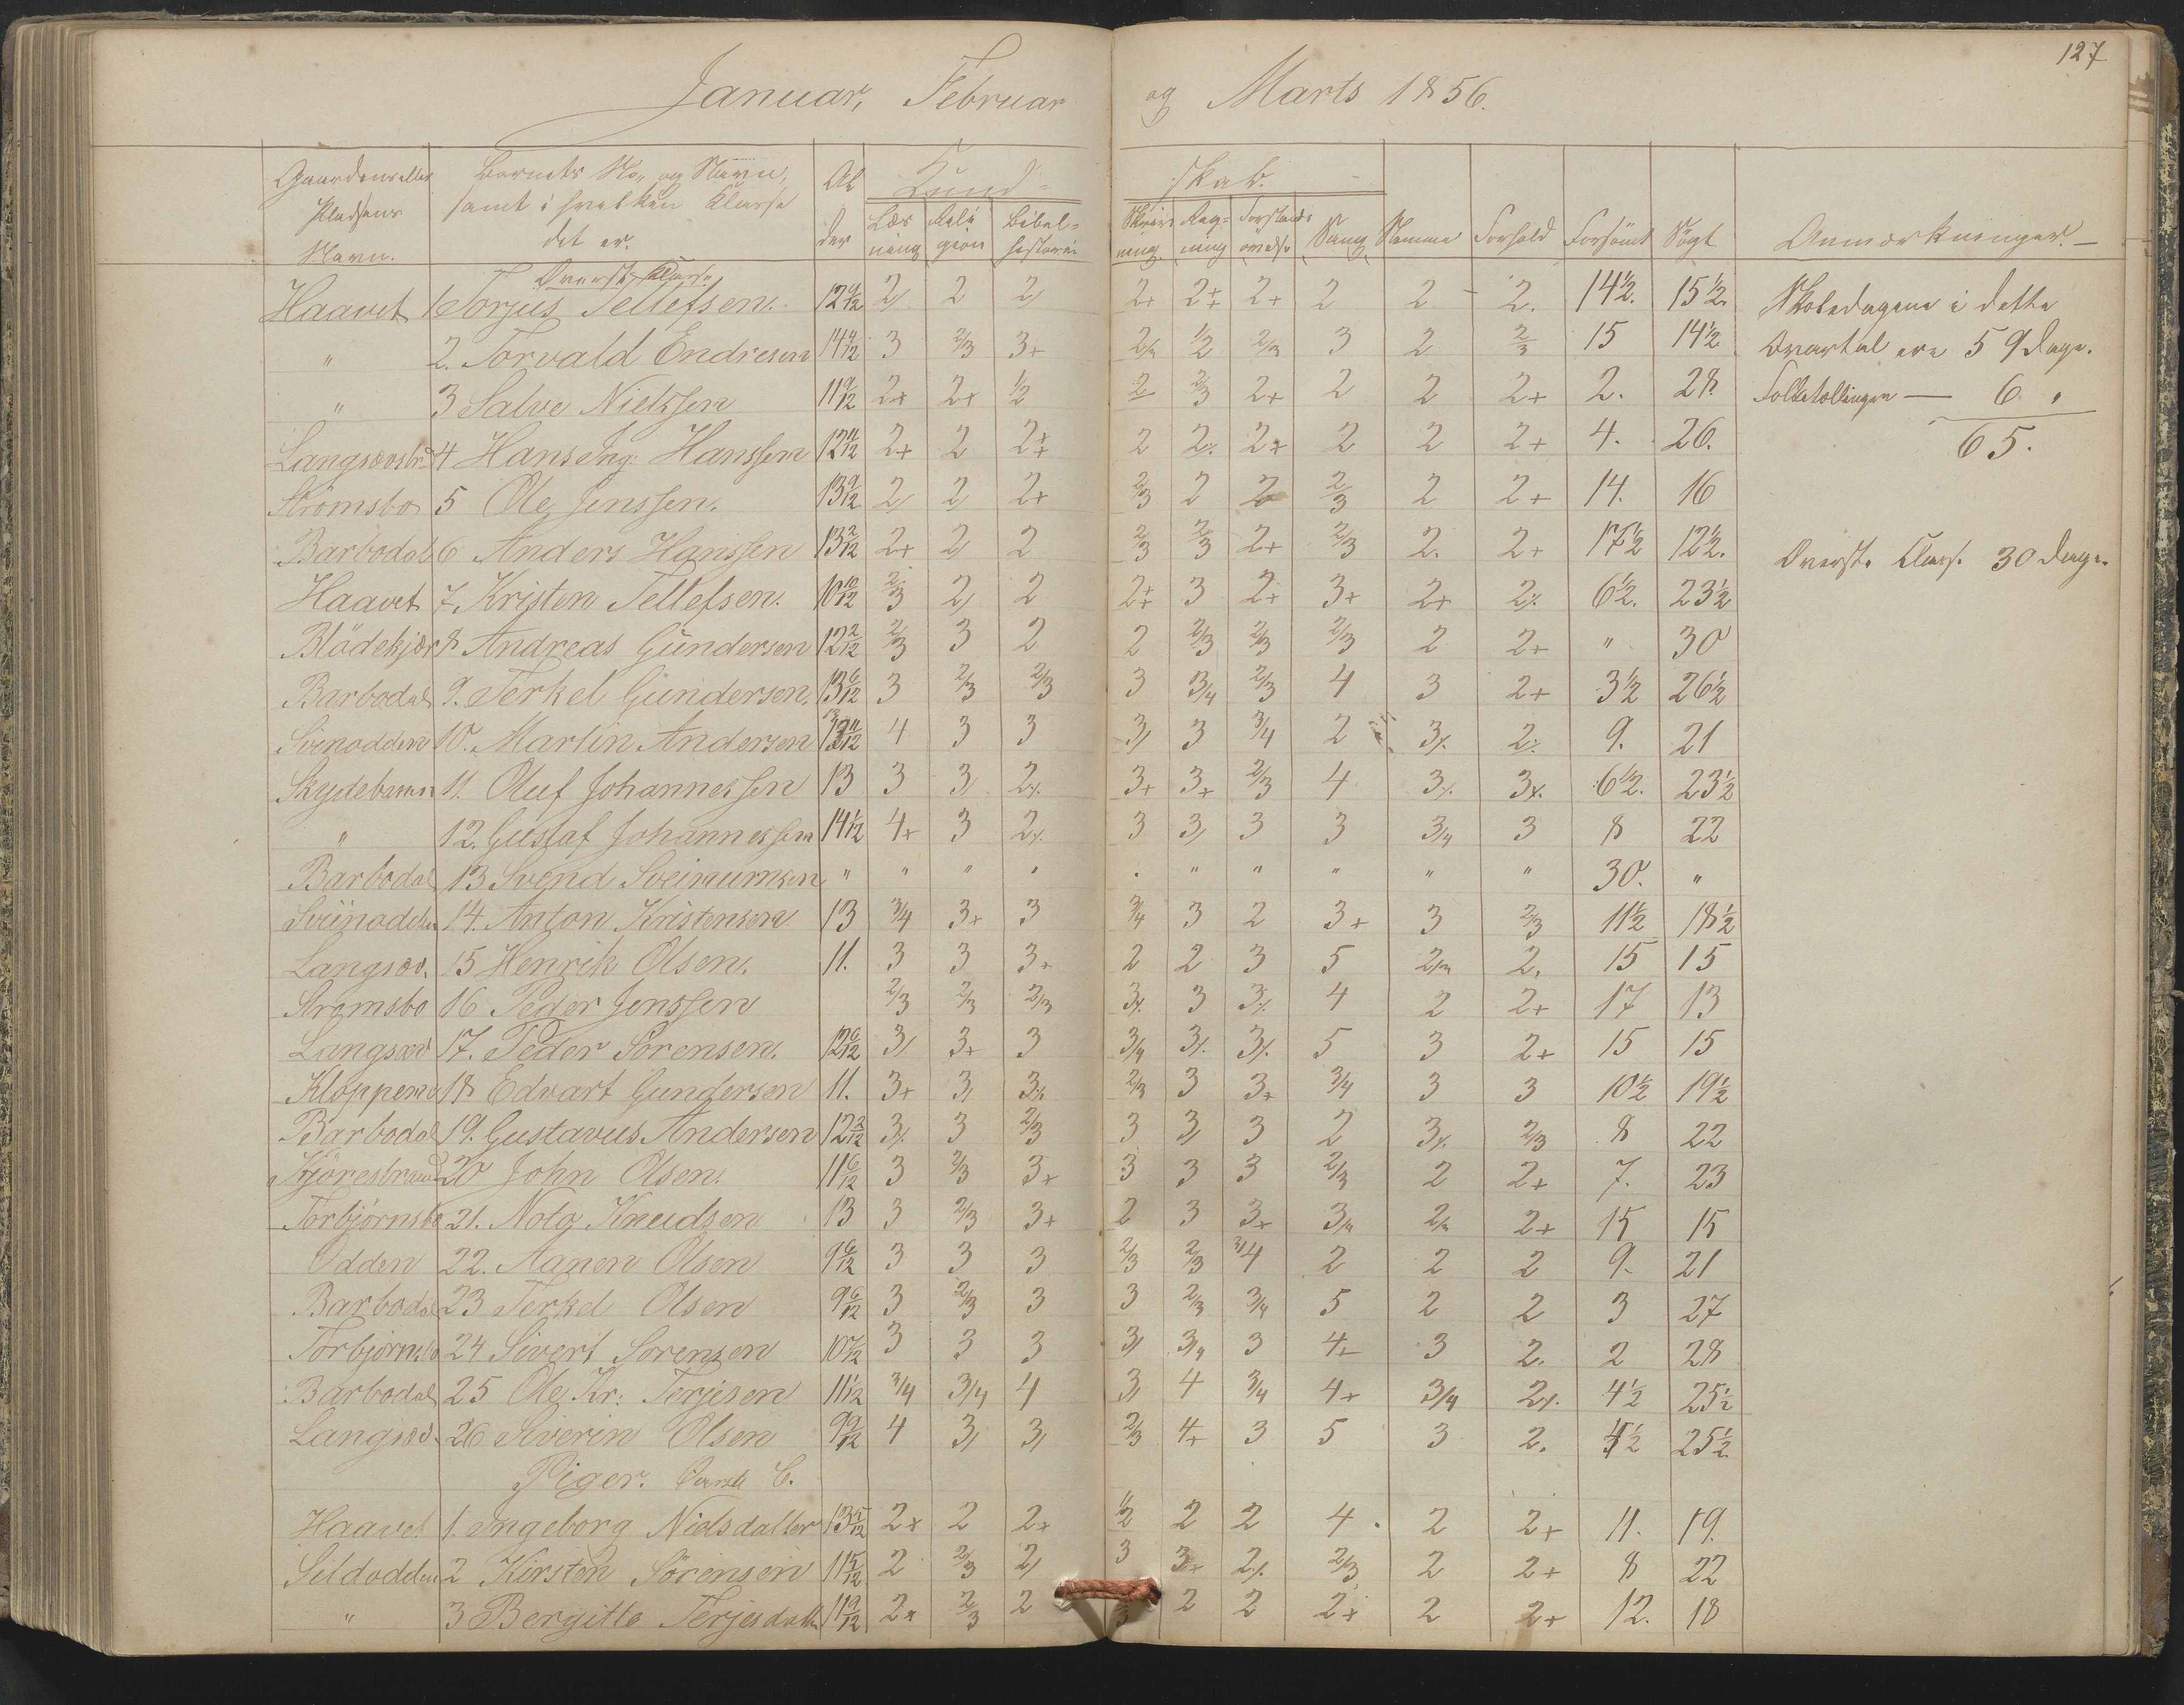 127
Januar, Februar og Marts 1856.
Gaardens eller Pladsens Navn. | Barnets No. og Navn, samt i hvilken Classe det er. | Alder | Kundskab. | Læsning | Religion | Bibelhistorie | Skrivning | Regning | Forstands øvelse | Sang | Stemme | Forhold | Forsömt | Sögt | Anmærkninger.
Øverste Classe.
Haavet 1 Torjus Tellefsen. 12 9/12 2/ 2 2/ 2+ 2++ 2+ 2 2 2. 14½. 15½. Skoledagene i dette
" 2. Torvald Endresen 14 4/12 3 2/3 3+ 2/3 ½ 2/3 3 2 2/3 15 14½ Qvartal ere 59 Dage.
" 3 Salve Nielsen 11 9/12 2+ 2+ ½ 2 2/3 2+ 2 2 2+ 2. 28. Folketællingen — 6 "
4 Hans Ing. Hanssen 12 11/12 2+ 2 2++ 2 2% 2+ 2 2 2+ 4. 26. 65.
Strömsbo 5 Ole Jenssen. 13 9/12 2/ 2/ 2+ 2/3 2 2 2/3 2 2+ 14. 16
Barbodal 6 Anders Hanssen 13 2/12 2+ 2/ 2 2/3 2/3 2+ 2/3 2. 2+ 17½ 12½. Øverste Classe 30 Dage.
Haavet 7 Kristen Tellefsen. 10 10/12 2/3 2/ 2 2++ 3 2+ 3+ 2+ 2% 6½. 23½
Blödekjær 8 Andreas Gundersen 12 2/12 2/3 3 2 2 2/3 2/3 2/3 2 2+ " 30
Barbodal 9. Terkel Gundersen. 13 6/12 3 2/3 2/3 3 3/4 2/3 4 3 2+ 3½ 26½
Svinodden 10. Martin Andersen 4 3 3 3/ 3 3/4 2 3% 2% 9. 21
11. Oluf Johannessen 13 3 3/ 2% 3+ 3+ 2/3 4 3% 3% 6½. 23½
" 12. Gustaf Johannessen 14 1/12 4+ 3 2% 3 3/ 3 3 3/4 3 8 22
Barbodal 13 Svend " " " " " " " " " " 30. "
Svinodden 14. Anton Kristensen 13 3/4 3+ 3 3/4 3 2 3+ 3 2/3 11½ 18½
Langsæv. 15 Henrik Olsen. 11. 3 3 3+ 2 2 3 5 2/3 2. 15 15
Strömsbo 16 Peder Jenssen 2/3 2/3 2/3 3% 3 3% 4 2 2+ 17 13
Langsæv 17. Peder Sörensen. 12 6/12 3/ 3+ 3 3/4 3% 3% 5 3 2+ 15 15
Kloppene 18 Edvart Gundersen 11. 3+ 3/ 3% 2/3 3 3+ 3/4 3 3 10½ 19½
Barbodal 19. Gustavus Andersen 12 2/12 3% 3 2/3 3 3/ 3 2 3% 2/3 8 22
20 John Olsen. 11 6/12 3 2/3 3+ 3 3 3 2/3 2 2+ 7. 23
Torbjörnsbo 21. Knudsen 13 3 2/3 3+ 2 3 3+ 3/4 2/3 2+ 15 15
Odden 22. Aanen Olsen 9 6/12 3 3 3 2/3 2/3 3/4 2 2 2 9. 21
Barbodal 23 Terkel Olsen 9 6/12 3 2/3 3 3 2/3 3/4 5 2 2 3 27
Torbjörnsbo 24 Sivert Sorensen 10 7/12 3 3 3 3/ 3/4 3 4+ 3 2. 2 28
Barbodal 25 Ole Kr. Terjesen 11 1/12 3/4 3/4 4 3/ 4 3/4 4+ 3/4 2% 4½ 25½
Langsæv. 26 Siverin Olsen 9 9/12 4 3/ 3/ 2/3 4+ 3 5 3 2. 4½ 25½
Piger. Øverste C.
Haavet 1. Ingeborg Nielsdatter 13 5/12 2+ 2 2+ ½ 2 2 4 2 2+ 11. 19.
Sildodden 2 Kirsten Sörensen 11 5/12 2 2/3 2/ 3 3+ 2% 2/3 2 2+ 8 22
" 3 Bergitte Terjesdatter 11 9/12 2+ 2/3 2 2/3 2 2 2+ 2 2+ 12. 18